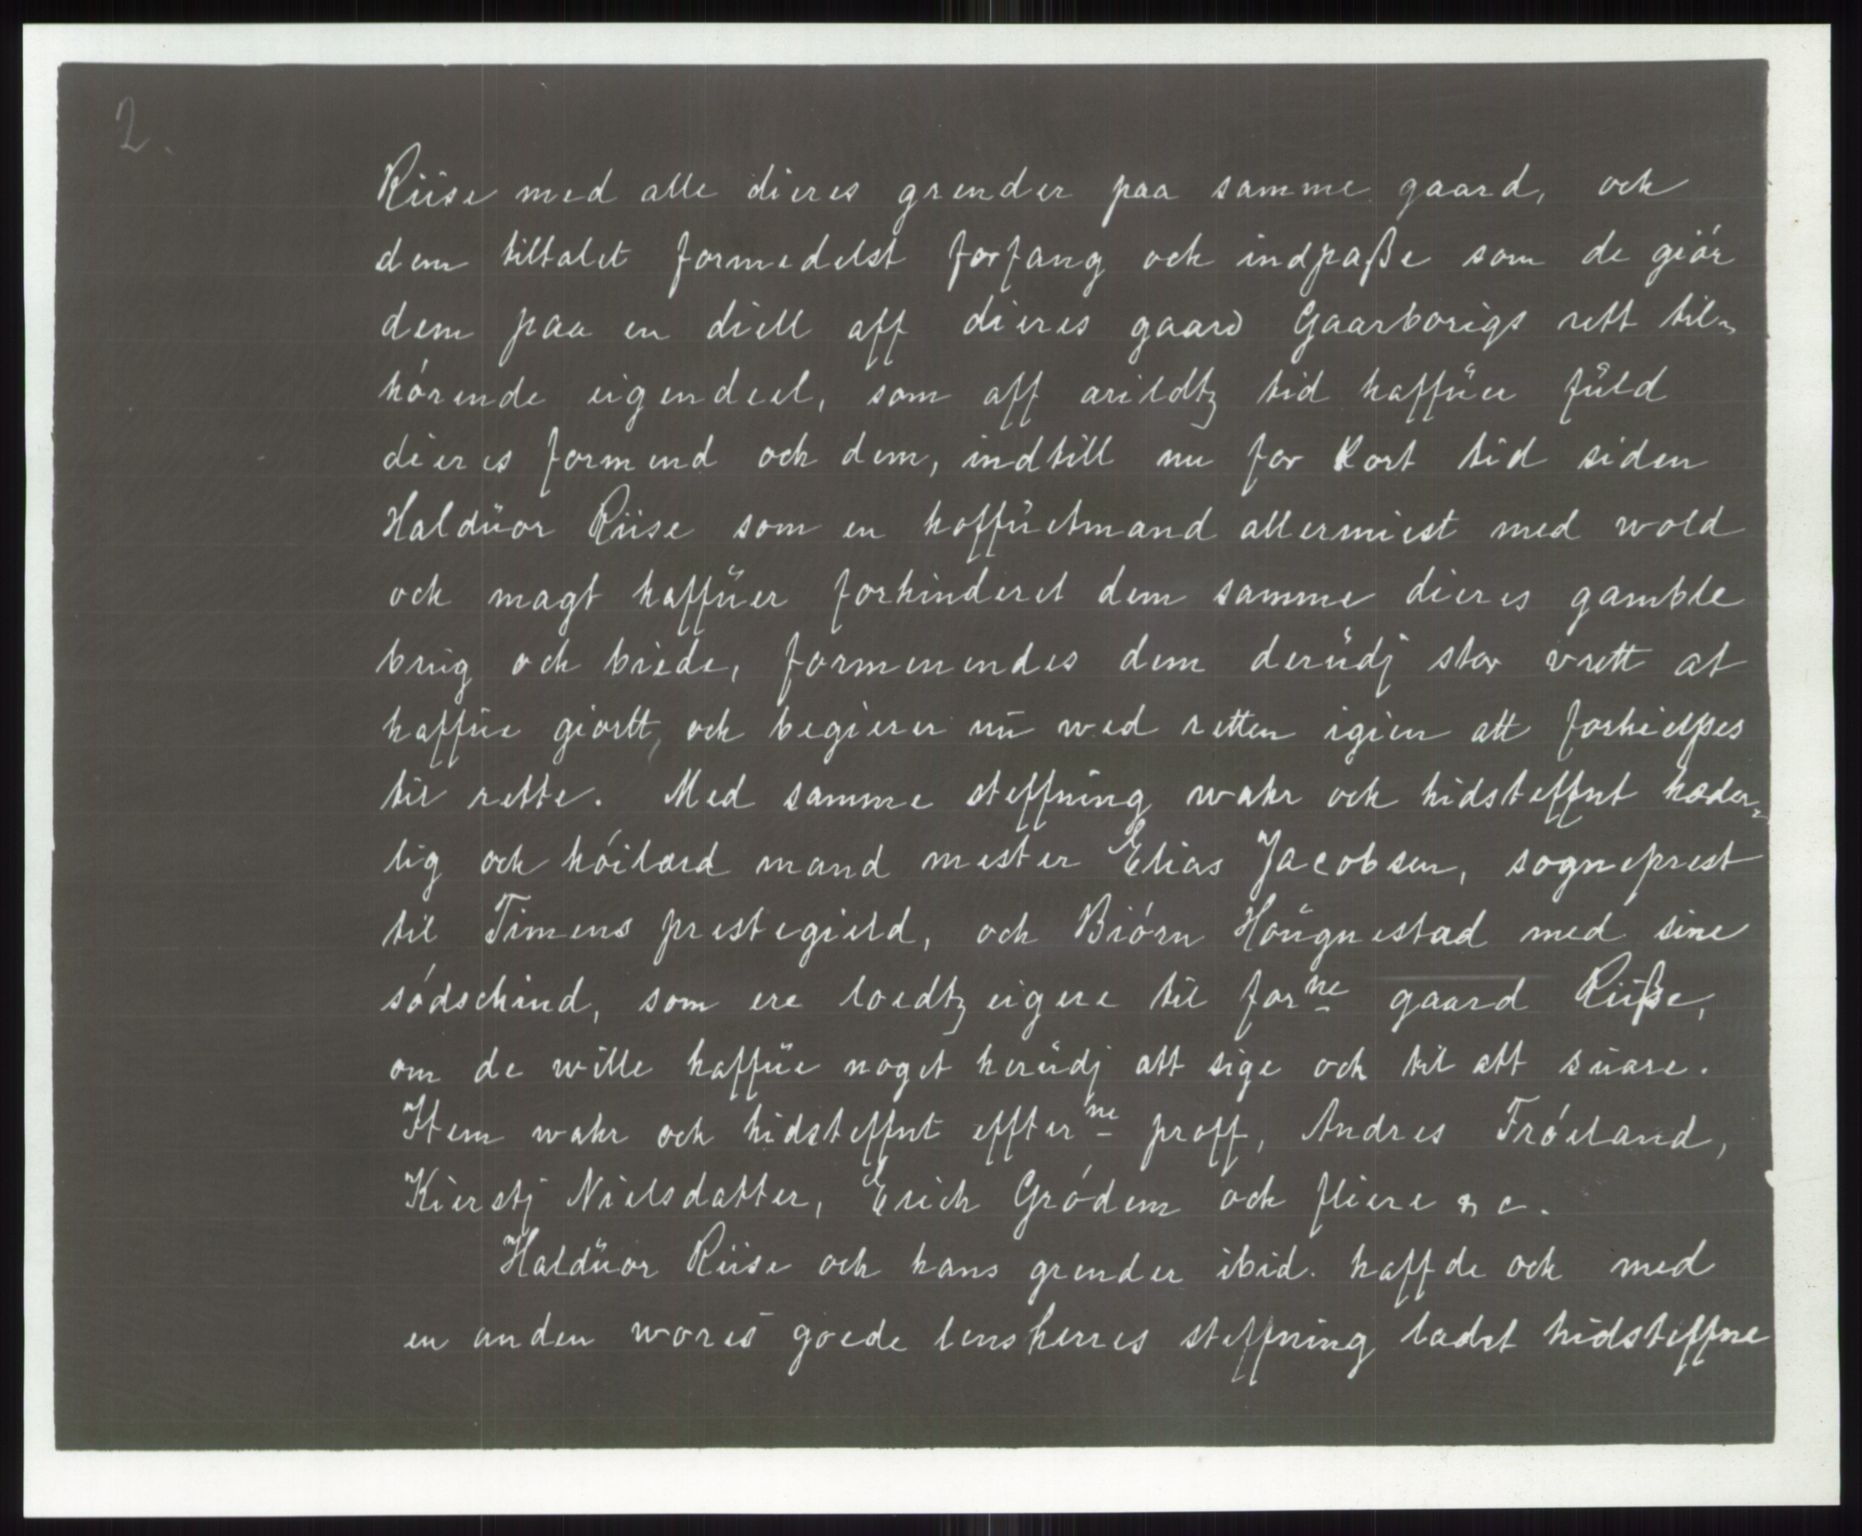 2.
Riise med alle dieres grender paa samme gaard, och
dem tiltalet formedelst forfang och indpaße som de giór
dem paa en diell aff dieres gaard Gaarborigs rett til-
hórende eigendeel, som aff arildtz tid haffüer füld
dieres formend och dem, indtill nu for kort tid siden
Haldüor Riise som en hoffüetmand allermiest med wold
och magt haffüer forhinderet dem samme dieres gamble
brüg och biede, formenendes dem derüdj stor vrett at
haffüe giortt, och begierer nü wed retten igien att forhielpes
til rette. Med samme steffning wahr och hidsteffnt hæder-
lig och hóilærd mand mester Elias Jacobsen, sogneprest
til Timens prestegield, och Biórn Höügnestad med sine
sódschind, som ere loedtz eigere til forne gaard Riiße,
om de wille haffüe noget herüdj att sige och til att süare.
Item wahr och hidsteffnt effterne proff, Andres Tróeland,
Kierstj Nielsdatter, Erich Gródem och fliere &c.
Haldüor Riise och hans grender ibid. haffde och med
en anden wores goede lensherres steffning ladet hidsteffne